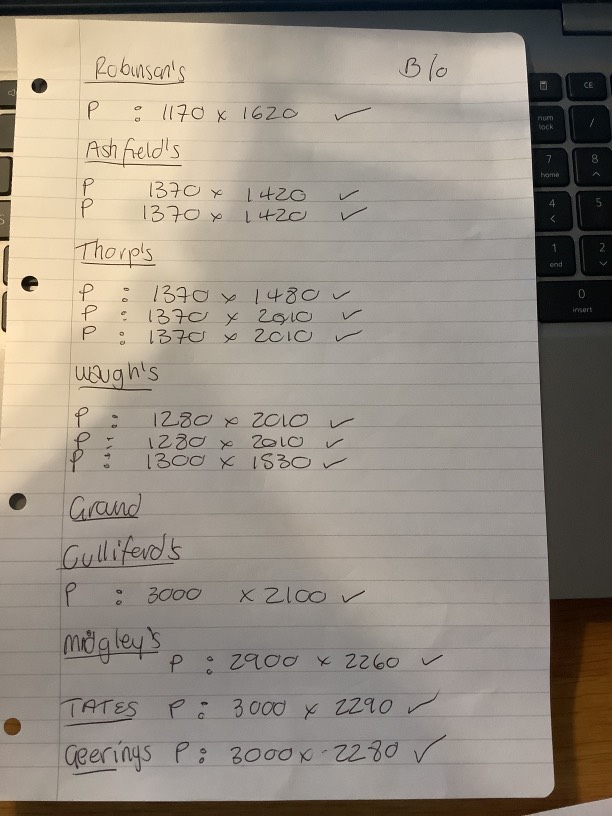 Robinson's B/o
P : 1170 x 1620 ✓
Ashfield's
P 1370 x 1420 ✓
P 1370 x 1420 ✓
Thorp's
P : 1370 x 1480 ✓
P : 1370 x 2010 ✓
P : 1370 x 2010 ✓
Waugh's
P : 1280 x 2010 ✓
P : 1280 x 2010 ✓
P : 1300 x 1830 ✓
Grand
Culliford's
P : 3000 x 2100 ✓
Midgley's
P : 2900 x 2260 ✓
TATES P : 3000 x 2290 ✓
Geerings P : 3000 x 2280 ✓
CE
num lock /
7 home 8
4 5
1 end 2
0 insert